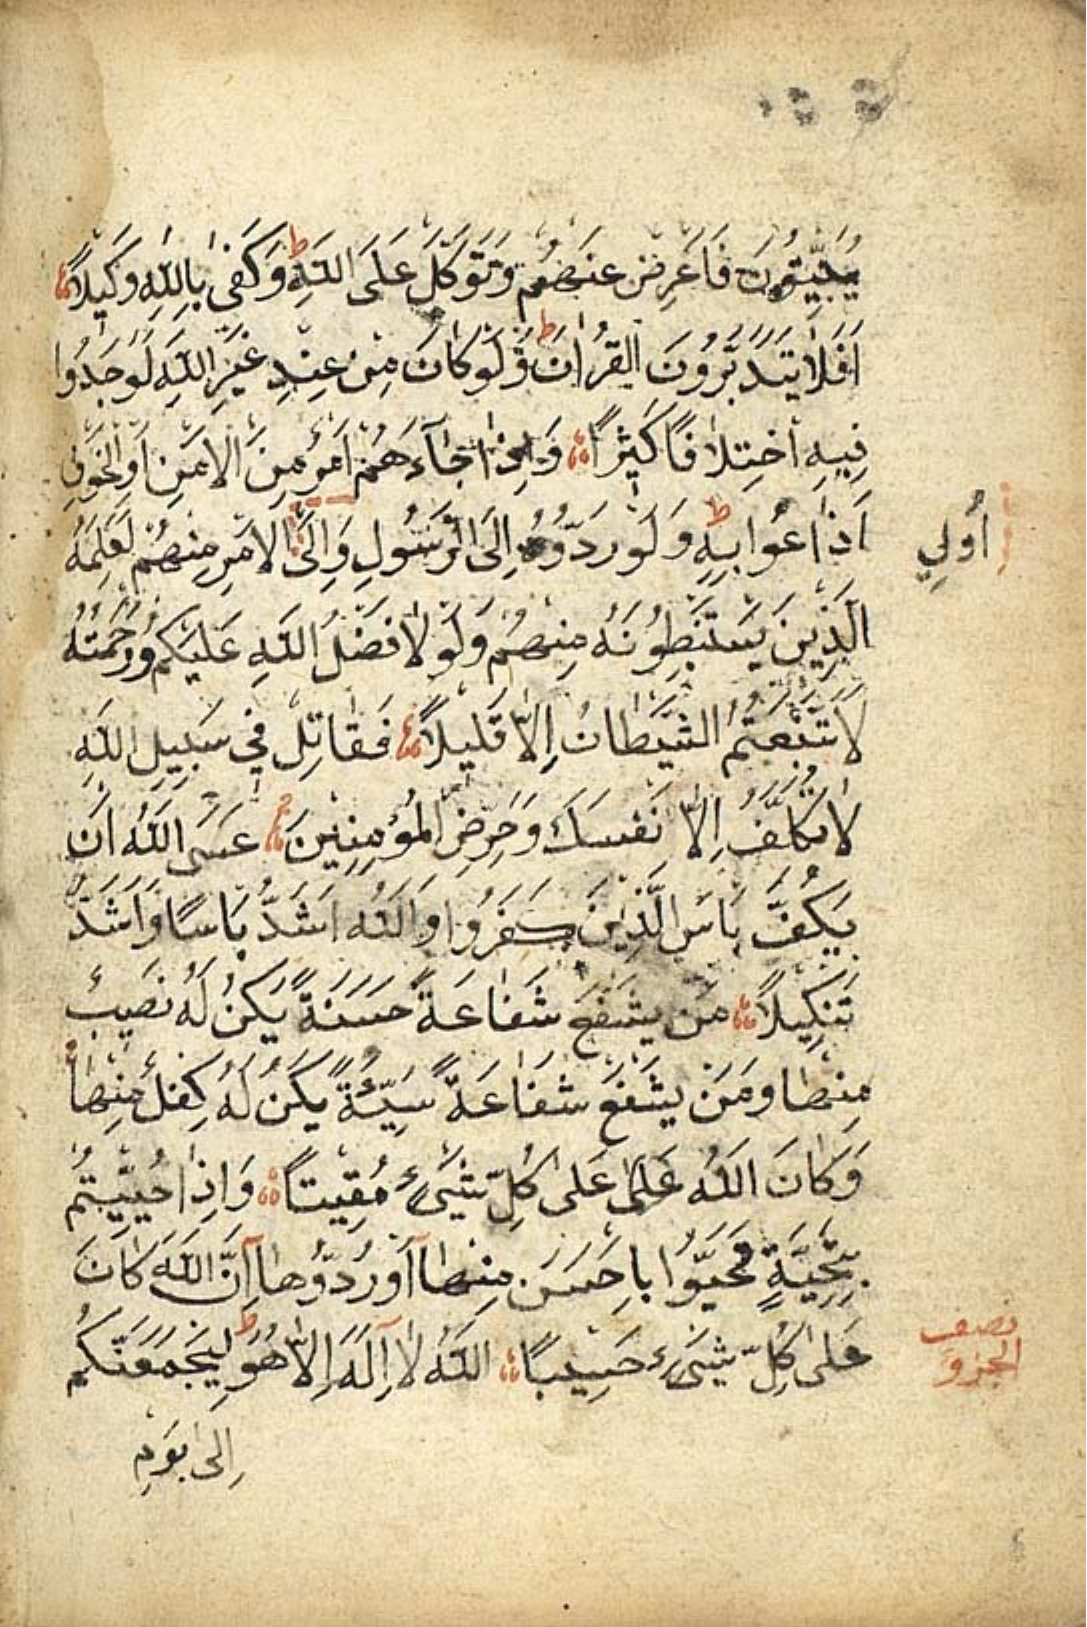 يُبَيِّتُونَ فَاَعْرِضْ عَنْهُمْ وَتَوَكَّلْ عَلَى اللّٰهِ ط وَكَفٰى بِاللّٰهِ وَكِيلًا
اَفَلَا يَتَدَبَّرُونَ الْقُرْاٰنَ ط وَلَوْ كَانَ مِنْ عِنْدِ غَيْرِ اللّٰهِ لَوَجَدُوا
فِيهِ اخْتِلَافًا كَثِيرًا وَاِذَا جَآءَهُمْ اَمْرٌ مِنَ الْاَمْنِ اَوِ الْخَوْفِ
اَذَاعُوا بِهِ ط وَلَوْ رَدُّوُهُ اِلَى الرَّسُولِ وَاِلٰى الْاَمْرِ مِنْهُمْ لَعَلِمَهُ
اُولِي
الَّذِينَ يَسْتَنْبِطُونَهُ مِنْهُمْ وَلَوْلَا فَضْلُ اللّٰهِ عَلَيْكُمْ وَرَحْمَتُهُ
لَاتَّبَعْتُمُ الشَّيْطَانَ اِلَّا قَلِيلًا فَقَاتِلْ فِي سَبِيلِ اللّٰهِ
لَا تُكَلَّفُ اِلَّا نَفْسَكَ وَحَرِّضِ الْمُؤْمِنِينَ ج عَسَى اللّٰهُ اَنْ
يَكُفَّ بَاْسَ الَّذِينَ كَفَرُوا وَاللّٰهُ اَشَدُّ بَاْسًا وَاَشَدُّ
تَنْكِيلًا مَنْ يَشْفَعْ شَفَاعَةً حَسَنَةً يَكُنْ لَهُ نَصِيبٌ
مِنْهَا وَمَنْ يَشْفَعْ شَفَاعَةً سَيِّئَةً يَكُنْ لَهُ كِفْلٌ مِنْهَا
وَكَانَ اللّٰهُ عَلٰى عَلٰى كُلِّ شَيْءٍ مُقِيتًا وَاِذَا حُيِّيتُمْ
بِتَحِيَّةٍ فَحَيُّوا بِاَحْسَنَ مِنْهَا اَوْ رُدُّوهَا اِنَّ اللّٰهَ كَانَ
عَلٰى كُلِّ شَيْءٍ حَسِيبًا اَللّٰهُ لَا اِلٰهَ اِلَّا هُوَ ط لَيَجْمَعَنَّكُمْ
نصف
الجزو
اِلٰى يَوْمِ